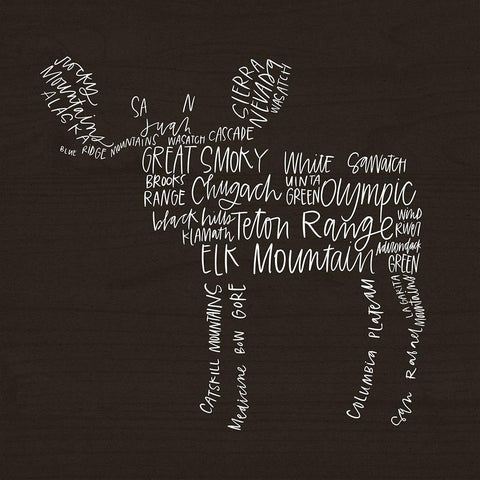 Rocky
Mountains
ALASKA
SIERRA
NEVADA
WASATCH
SA N
Juan
BLUE RIDGE MOUNTAINS WASATCH CASCADE
GREAT SMOKY White SaWatch
BROOKS RANGE Chugach UINTA GREEN Olympic
black hills Teton Range WIND RIVER
KLAMATH Adirondack
ELK Mountain GREEN
CATSKILL MOUNTAINS
Medicine BOW GORE
COLUMBIA PLATEAU
LA GARITA
San Rafael Mountains